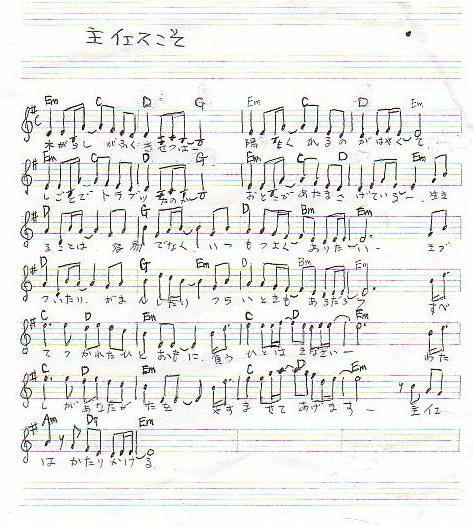 主イエスこそ
Em C D G Em C D Em
木がらし がふくきせつは 陽がくれるのがはやくて
Em C D G Em C D Em
しごとで トラブッ おとこがあたまさげている 生き
D G Em D Bm Em
ることは 容易でなく いつもつよくありたい きず
D G Em D Bm Em
ついたり がまんしたり つらいときもあるだろう すべ
C D Em C D Em
てつかれたひと おもに 負うひとはきなさい わた
C D Em C D Em
しがあなたがたを やすませてあげます 主イエ
Am D7 Em
はかたりかける